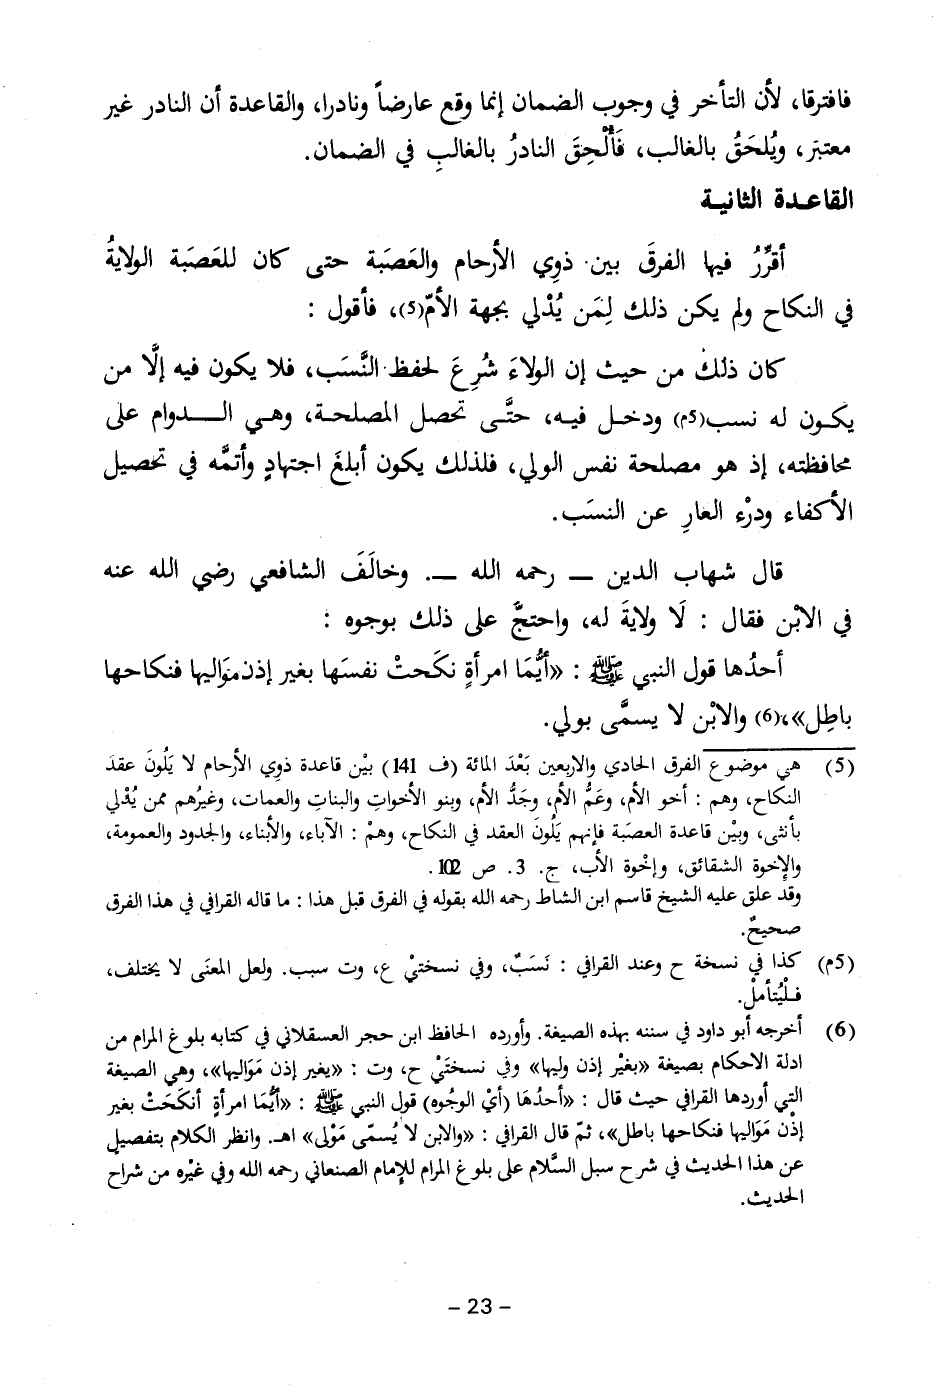 فافترقا، لأن التأخر في وجوب الضمان إنما وقع عارضاً ونادرا، والقاعدة أن النادر غير
معتبَر، ويُلحَقُ بالغالب، فَأُلْحِقَ النادرُ بالغالبِ في الضمان.
القاعدة الثانية
أقرِّرُ فيها الفرقَ بين ذوِي الأرحام والعَصَبَة حتى كان للعَصَبَة الولايةُ
في النكاح ولم يكن ذلك لِمَن يُدْلي بجهة الأمّ(5)، فأقول :
كان ذلكَ من حيث إن الولاءَ شُرِعَ لحفظ النَّسَب، فلا يكون فيه إلَّا من
يكون له نسب(5م) ودخل فيه، حتَّى تحصل المصلحة، وهي الدوام على
محافظته، إذ هو مصلحة نفس الولي، فلذلك يكون أبلغَ اجتهادٍ وأتمَّه في تحصيل
الأكفاء ودرْء العارِ عن النسَب.
قال شهاب الدين — رحمه الله —. وخالَفَ الشافعي رضي الله عنه
في الابْن فقال : لَا ولايةَ له، واحتجَّ على ذلك بوجوه :
أحدُها قول النبي ﷺ : «أيُّمَا امرأةٍ نكَحتْ نفسَها بغير إذن مَوَاليها فنكاحها
باطِل»،(6) والابْن لا يسمَّى بولي.
(5) هي موضوع الفرق الحادي والاربعين بَعْدَ المائة (ف 141) بيْن قاعدة ذوِي الأرحام لا يَلُونَ عقدَ
النكاح، وهم : أخو الأم، وعَمُّ الأم، وجَدُّ الأم، وبنو الأخواتِ والبناتِ والعمات، وغيرُهم ممن يُدْلي
بأنثى، وبيْن قاعدة العصَبة فإنهم يَلُونَ العقد في النكاح، وهمْ : الآباء، والأبناء، والجدود والعمومة،
والإخوة الشقائق، وإخْوة الأب، ج. 3. ص 102.
وقد علق عليه الشيخ قاسم ابن الشاط رحمه الله بقوله في الفرق قبل هذا : ما قاله القرافي في هذا الفرق
صحيحٌ.
(5م) كذا في نسخة ح وعند القرافي : نَسَبٌ، وفي نسختيْ ع، وت سبب. ولعل المعنَى لا يختلف،
فلْيُتأملْ.
(6) أخرجه أبو داود في سننه بهذه الصيغة. وأورده الحافظ ابن حجر العسقلاني في كتابه بلوغ المرام من
ادلة الاحكام بصيغة «بغيْر إذن وليها» وفي نسختَيْ ح، وت : «يغير إذن مَوَاليها»، وهي الصيغة
التي أوردها القرافي حيث قال : «أحدُهَا (أيْ الوجُوه) قول النبي ﷺ : «أيُّمَا امرأةٍ أنكَحَتْ بغير
إذْن مَوَاليها فنكاحها باطل»، ثمّ قال القرافي : «والابن لا يُسمّى مَوْلى» اهـ. وانظر الكلام بتفصيلٍ
عن هذا الحديث في شرح سبل السَّلام على بلوغ المرام للإمام الصنعاني رحمه الله وفي غيْره من شراح
الحديث.
– 23 –